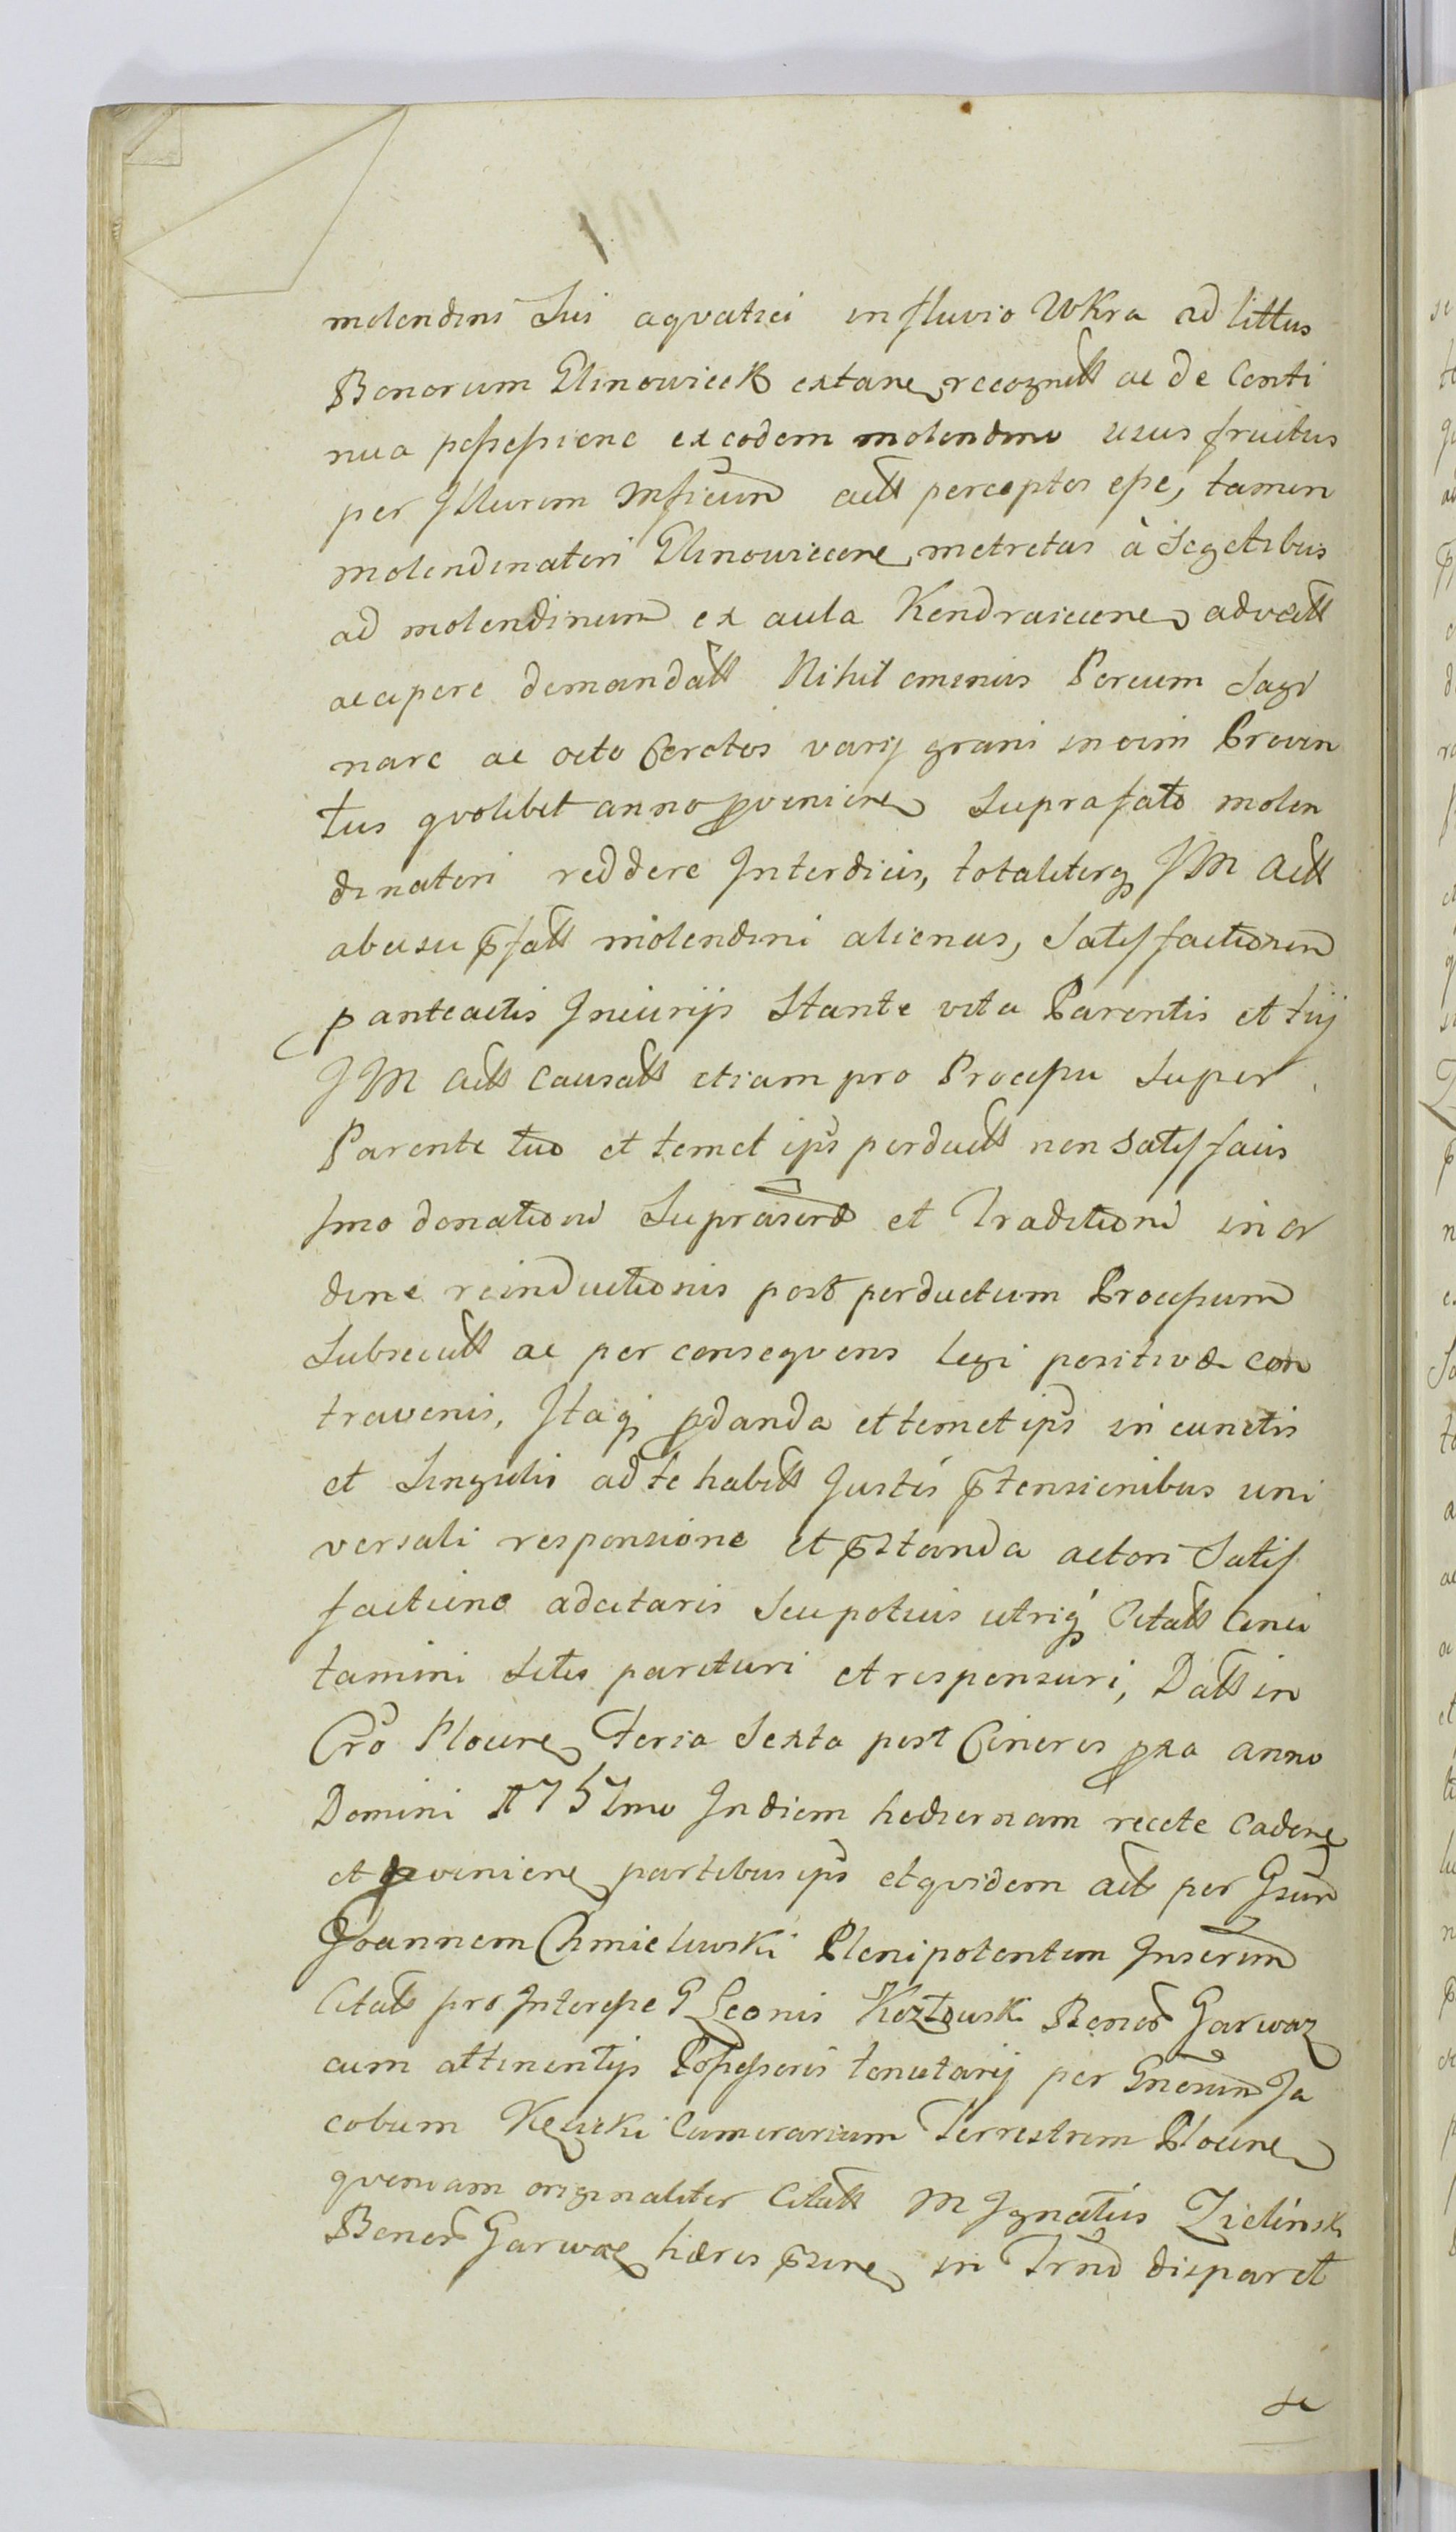 molendini Sui aqvatici in fluvio Wkra ad littus
Bonorum Glinowieck extane, recognitt ac de Conti
nua possessione ex eodem molendino usus fructus
per Illurem Mficum actt perceptos esse, tamen
molendinatori Glinowiecene, metretas à Segetibus
ad molendinum ex aula Kendraiecene advectt
accipere demandatt Nihilominus Porcum Sagi
nare ac octo Coretos varij grani in oim Proven
tus qvolibet anno pveniene Suprafato molen
dinatori reddere Interdicis, totaliterq JM Actt
abusu pfatt molendini alienus, Satisfactionem
p anteactis Iniurijs Stante vita Parentis et tuj
JM Actt Causatt etiam pro Processu Super
Parente tuo et temet ipso perductt non Satisfacis
Imo donationi Suprasedo et Traditioni in or
dine reinductionis post perductum Processum
Subsecutt ac per conseqvens legi positivæ con
travenis, Itaq pdanda et temet ipso in cunctis
et Singulis ad te habitt Iustis ptensionibus uni
versali responsione et pstanda actori Satis
factione adcitaris Seu potius utriq Citatt Conci
tamini Sitis parituri et responsuri, Datt in
Cro Plocene Feria Sexta post Cineres pxa anno
Domini 1757mo In diem hodiernam recete Cadene
et pveniene partibus ipis et qvidem actt per Gsum
Joannem Chmielewski Plenipotentem Inserum
Citatt pro Interesse G Leonis Kozłowski Bonor Garwaz
cum attinentijs Possessoris tenutarij per Gnerosum Ja
cobum Kęsicki Camerarium Terrestrem Plocene
qvoniam originaliter Citatt M Ignatius Zielinski
Bonor Garwaz hæres psene in Trno disparet
se